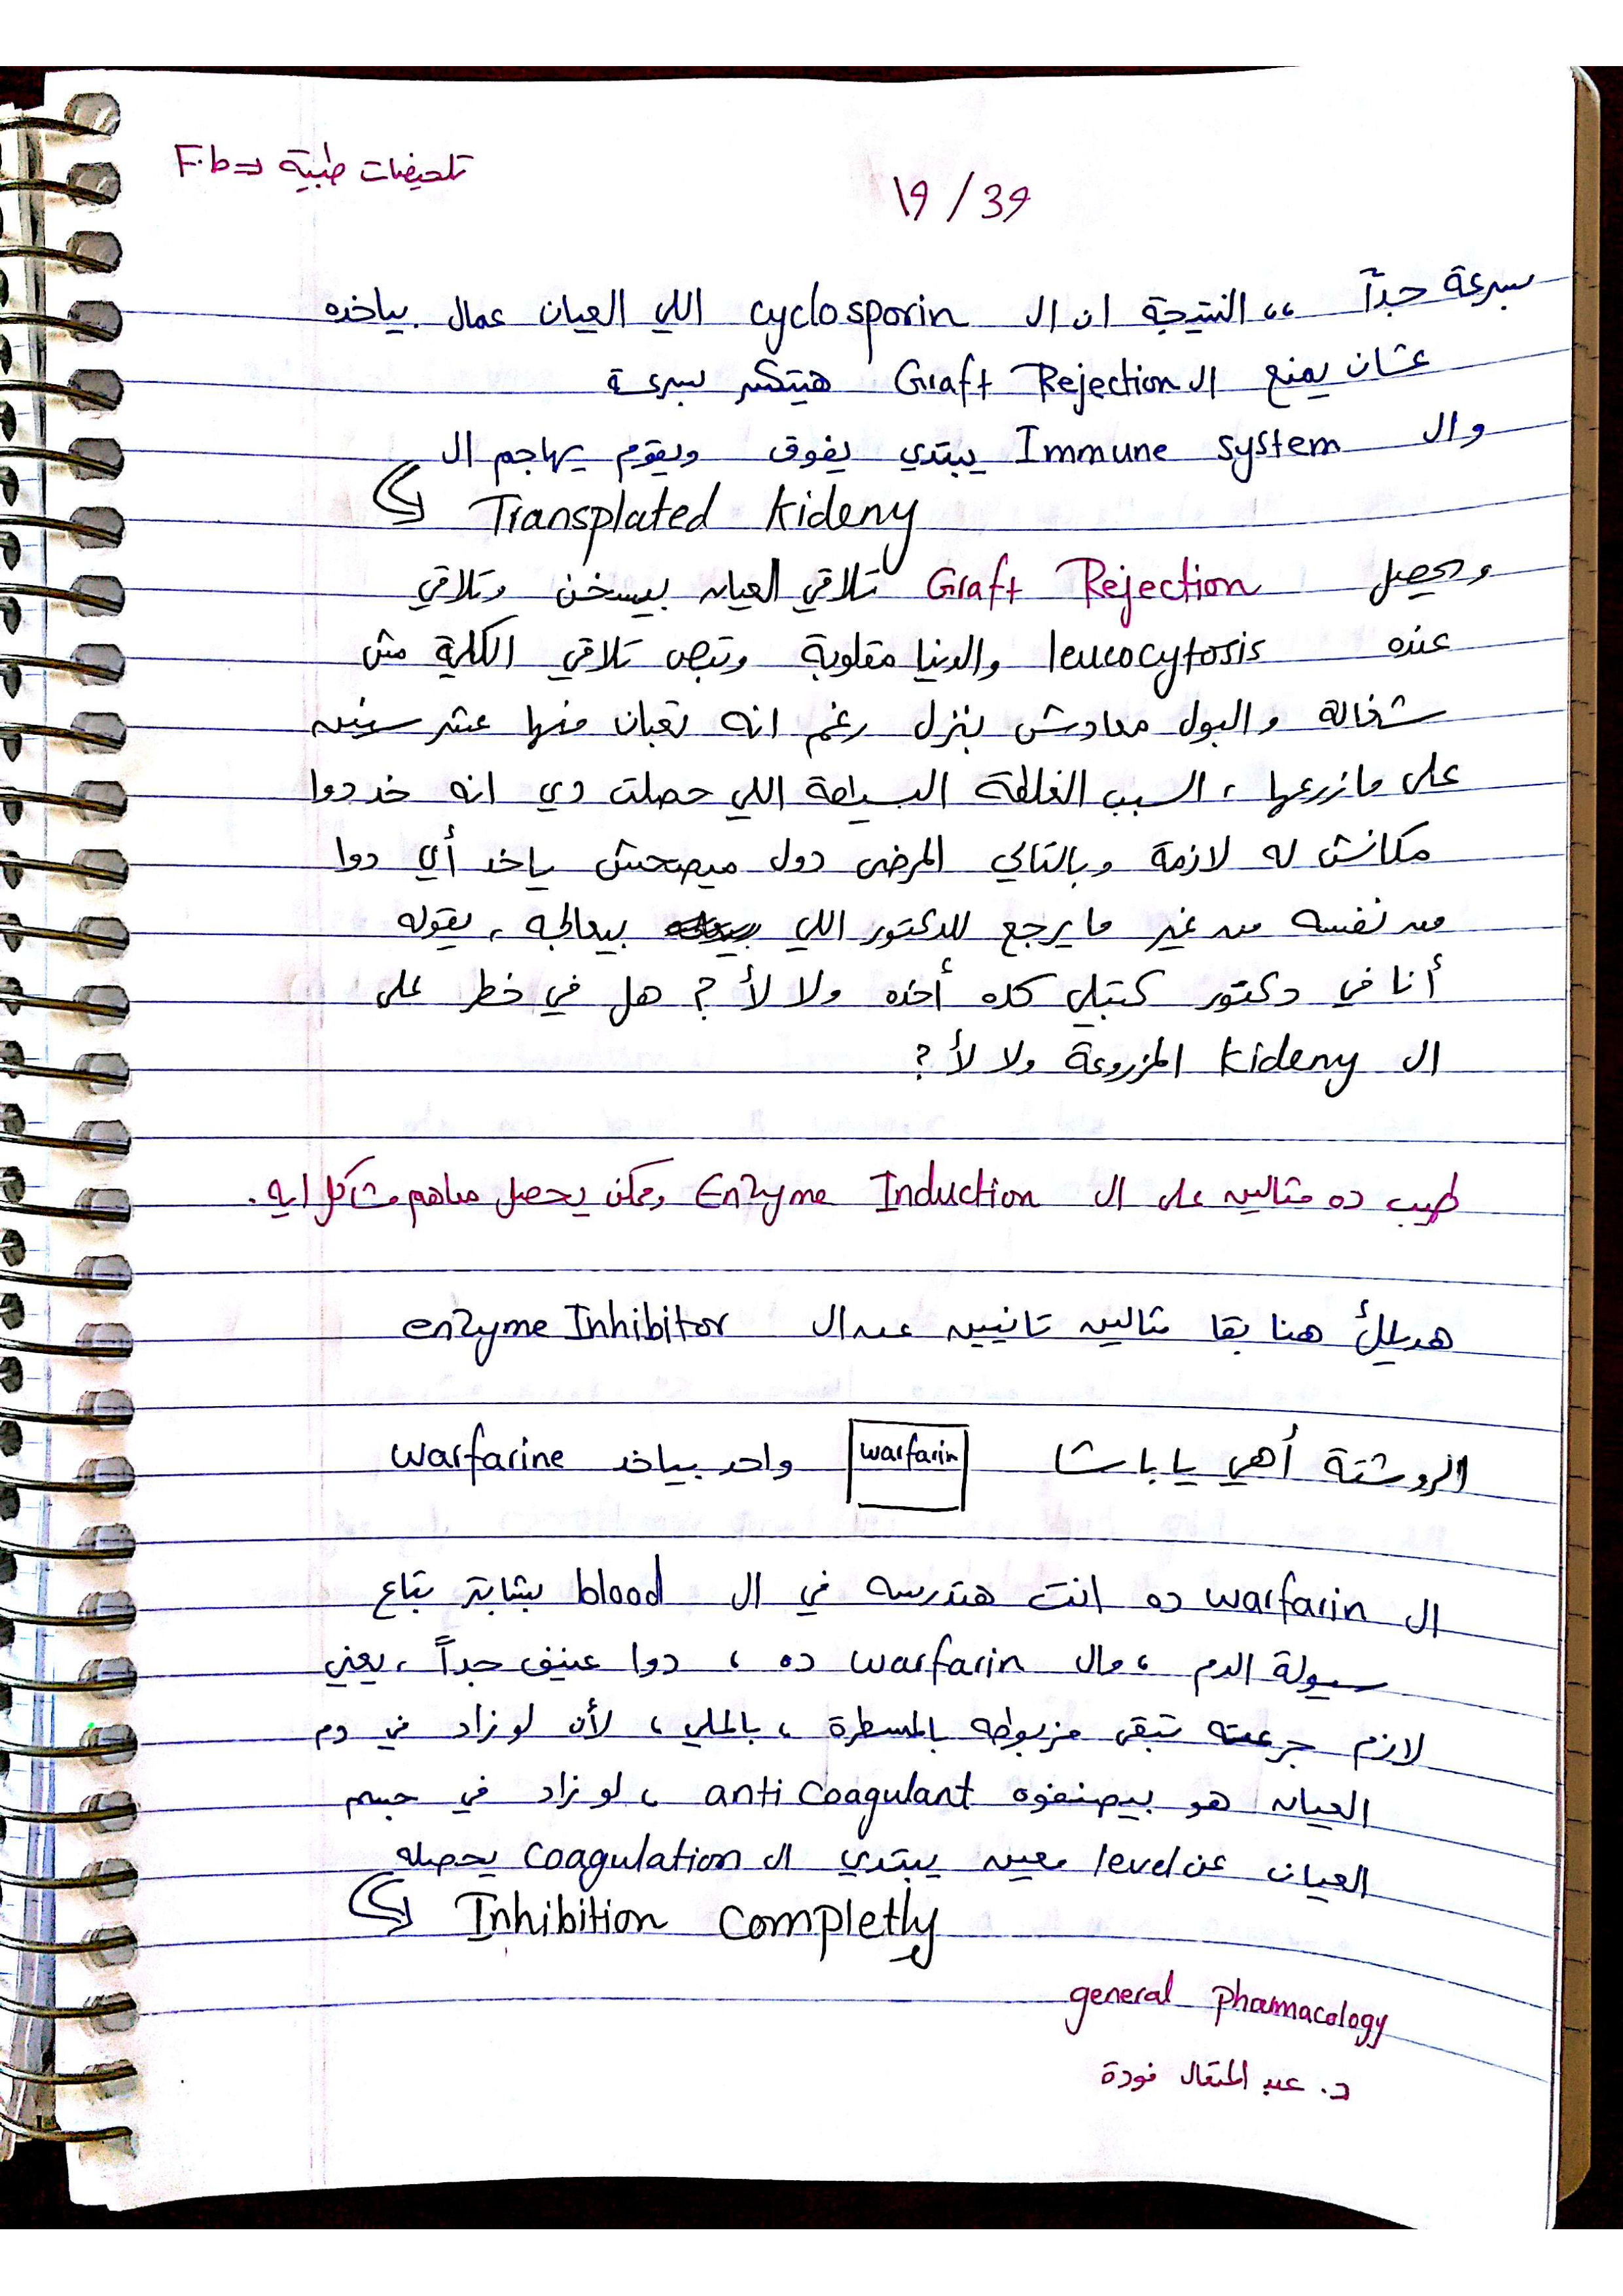 تلخيصات طبية => F.b
19/39
بسرعة جداً ،، النتيجة ان ال cyclosporin اللي العيان عمال بياخده
عشان يمنع ال Graft Rejection هيتكسر بسرعة
وال Immune system يبتدي يفوق ويقوم يهاجم ال
Transplated kideny
ويحصل Graft Rejection تلاقي العيان بيسخن وتلاقي
عنده leucocytosis والدنيا مقلوبة وتبص تلاقي الكلية مش
شغالة والبول معادش بينزل رغم انه تعبان منها عشر سنين
على ما زرعها ، السبب الغلطة البسيطة اللي حصلت دي انه خد دوا
مكانش له لازمة وبالتالي المرضى دول ميصحش ياخد أي دوا
من نفسه من غير ما يرجع للدكتور اللي بيعالجه ، يقوله
أنا في دكتور كتبلي كده أخده ولا لأ ? هل في خطر على
ال kideny المزروعة ولا لأ ?
طيب ده مثالين على ال Enzyme Induction وممكن يحصل معاهم مشاكل ايه .
هديلك هنا بقا مثالين تانيين عن ال enzyme Inhibitor
الروشتة أهي يا باشا warfarin واحد بياخد warfarine
ال warfarin ده انت هتدرسه في ال blood بشابتر بتاع
سيولة الدم ، وال warfarin ده ، دوا عنيف جداً ، يعني
لازم جرعته تبقى مزبوطه بالمسطرة ، بالملي ، لأن لو زاد في دم
العيان هو بيصنفوه anti coagulant ، لو زاد في جسم
العيان عن level معين يبتدي ال coagulation يحصله
Inhibition completly
general pharmacology
د. عبد المتعال فودة